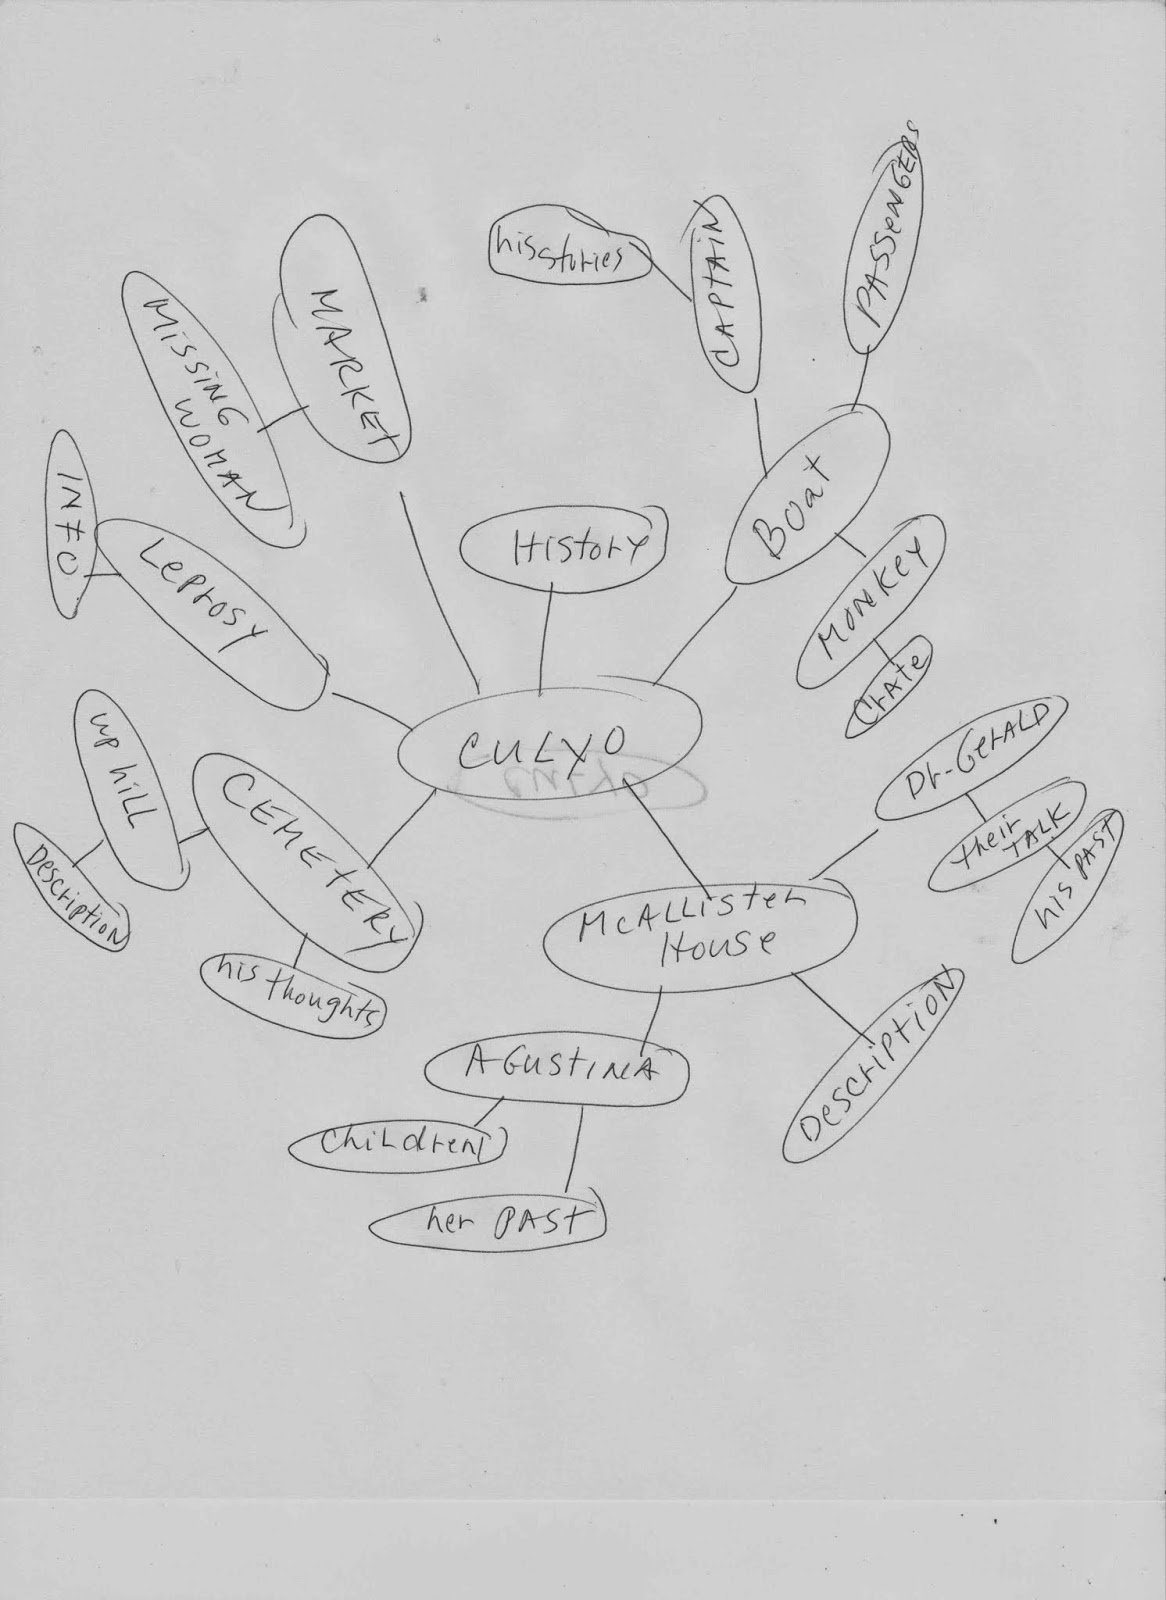 PASSENGERS
CAPTAIN
his stories
MARKET
MISSING
WOMAN
Boat
INFO
History
LeProsy
MONKEY
CrAte
CULYO
up hiLL
CEMEtERY
Dr-GerALD
their
TALK
his PAST
Description
McALLister
House
his thoughts
DescriptioN
AGustINA
chiLdren
her PAST